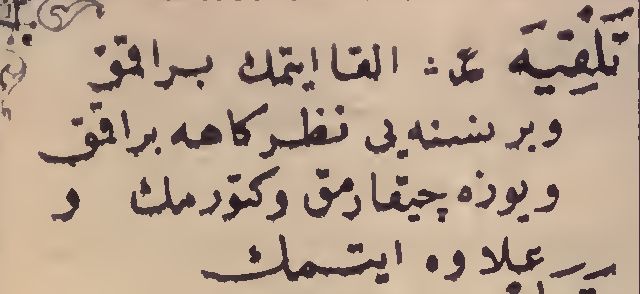 تَلْقِيَه عر: القا ایتمك براقمق
و بر نسنه یی نظرکاهه براقمق
و یوزه چیقارمق و کتورمك و
علاوه ایتمك